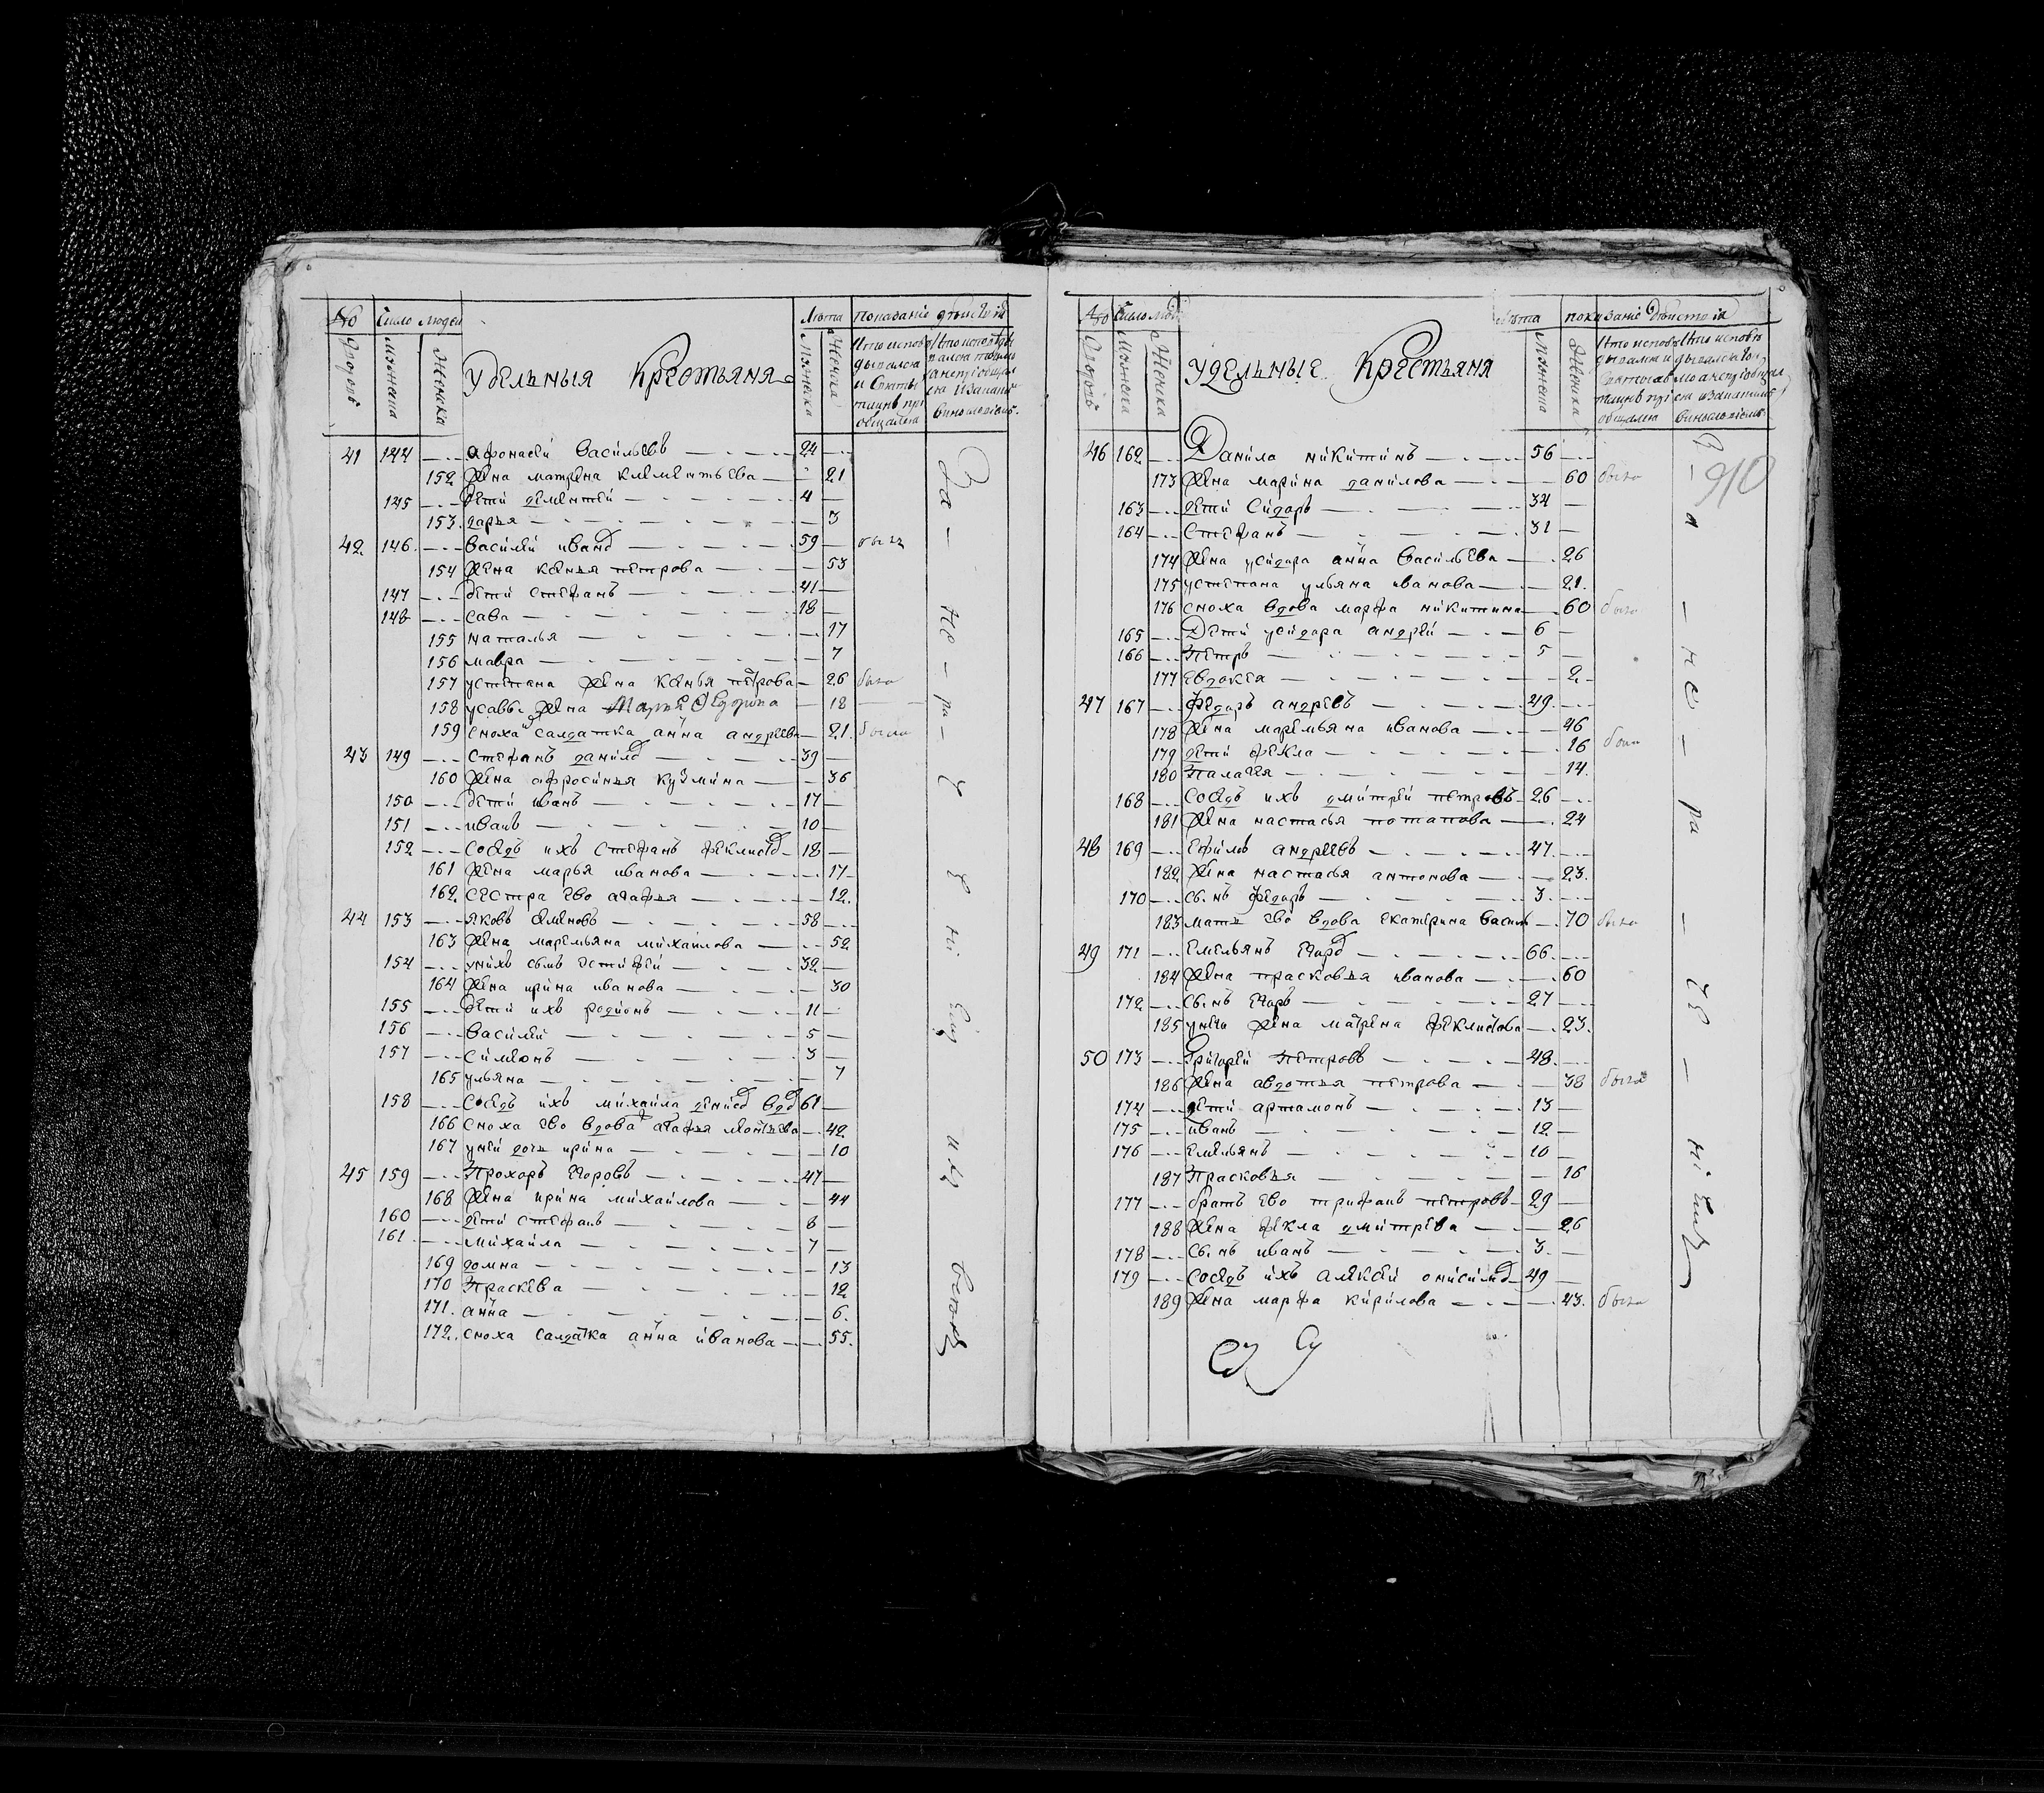 № Число людей Лѣта показаніе дѣйствія
Дворовъ Мужеска Женска Мужеска Женска
Удельныя Крестьяня
41 144 Афонасей Васильевъ 24
152 жена матрена клементьева 21
145 дети дементей 4
153 дарья 3
42 146 Василей иванов 59 былъ
154 жена ксенья петрова 53
147 дети степанъ 41
148 сава 18
155 наталья 17
156 мавра 7
157 устепана жена ксенья петрова 26 была
158 усавы жена Марья Федорова 18
159 сноха салдатка анна андреева 21 была
43 149 Степанъ данилов 39
160 жена афросинья кузмина 36
150 дети иванъ 17
151 иванъ 10
152 соседъ ихъ Степанъ феклистов 18
161 жена марья иванова 17
162 сестра ево агафья 12
44 153 яковъ семеновъ 58
163 жена маремьяна михайлова 52
154 унихъ сынъ естифей 32
164 жена ирина иванова 30
155 дети ихъ родионъ 11
156 василей 5
157 симеонъ 3
165 ульяна 7
158 соседъ ихъ михайла денисов вдов 61
166 сноха ево вдова агафья 42
167 уней дочь ирина 10
45 159 Прохоръ егоровъ 47
168 жена ирина михайлова 44
160 дети степанъ 8
161 михайла 7
169 домна 13
170 Праскева 12
171 анна 6
172 сноха салдатка анна иванова 55
За не ра че ні ем
№ Число людей Лѣта показаніе дѣйствія
Дворовъ Мужеска Женска Мужеска Женска
удельные Крестьяня
910
46 162 Данило никитинъ 56
173 жена марина данилова 60 была
163 дети Сидоръ 34
164 Степанъ 31
174 жена усидора анна васильева 26
175 устепана ульяна иванова 21
176 сноха вдова марфа никитина 60 была
165 Дети усидора андрей 6
166 Петръ 5
177 евдокея 2
47 167 Федоръ андреевъ 49
178 жена маремьяна иванова 46
179 дети фекла 16 была
180 Палагея 14
168 соседъ ихъ дмитрей петровъ 26
181 жена настасья потапова 24
48 169 Ефимъ андреевъ 47
182 жена настасья антонова 23
170 сынъ федоръ 3
183 мать ево вдова екатерина васил 70 была
49 171 Емельянъ егоров 66
184 жена прасковья иванова 60
172 сынъ егоръ 27
185 унего жена матрена феклистова 23
50 173 Григорей Петровъ 48
186 жена авдотья петрова 38 была
174 дети артамонъ 13
175 иванъ 12
176 Емельянъ 10
187 Прасковья 16
177 братъ ево трифанъ петровъ 29
188 жена фекла дмитрева 26
178 сынъ иванъ 3
179 соседъ ихъ алексей онисимов 49
189 жена марфа кирилова 43 была
За не ра че ні ем